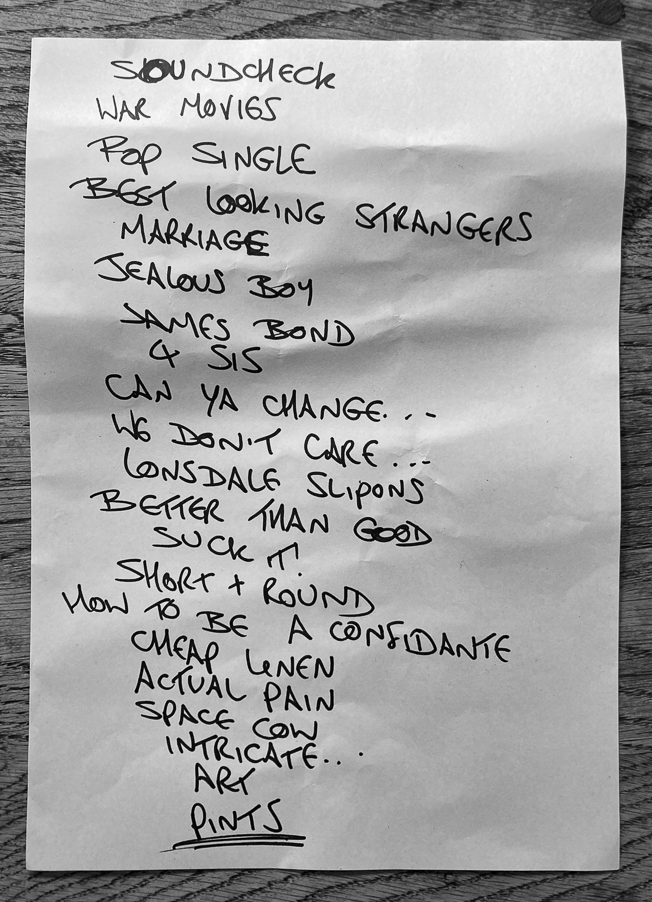 SOUNDCHECK
WAR MOVIES
POP SINGLE
BEST LOOKING STRANGERS
MARRIAGE
JEALOUS BOY
JAMES BOND
4 SIS
CAN YA CHANGE...
WE DON'T CARE...
LONSDALE SLIPONS
BETTER THAN GOOD
SUCK IT!
SHORT + ROUND
HOW TO BE A CONFIDANTE
CHEAP LINEN
ACTUAL PAIN
SPACE COW
INTRICATE...
ART
PINTS